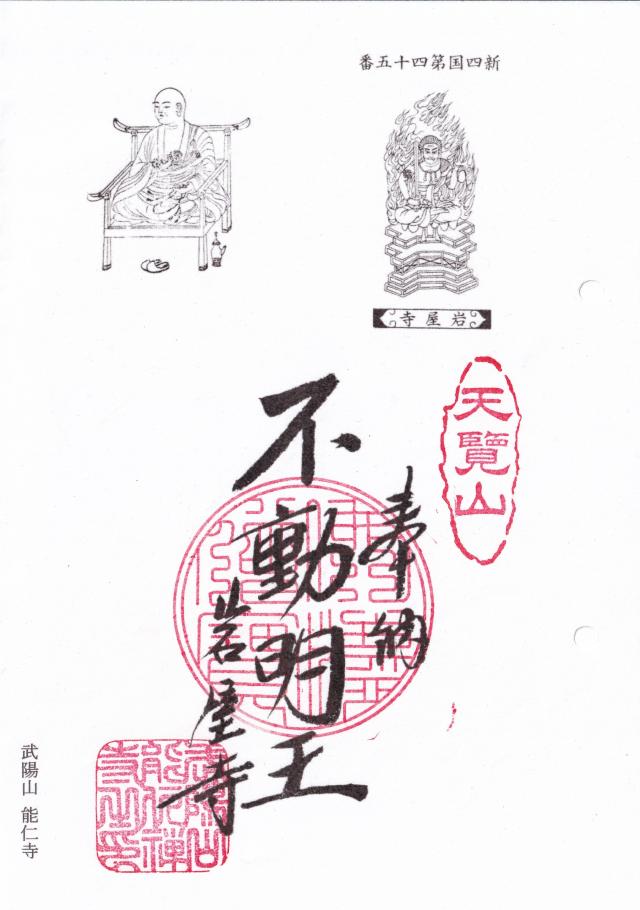 番五十四第国四新
寺屋岩
天覽山
奉納
不動明王
岩屋寺
武陽山 能仁寺